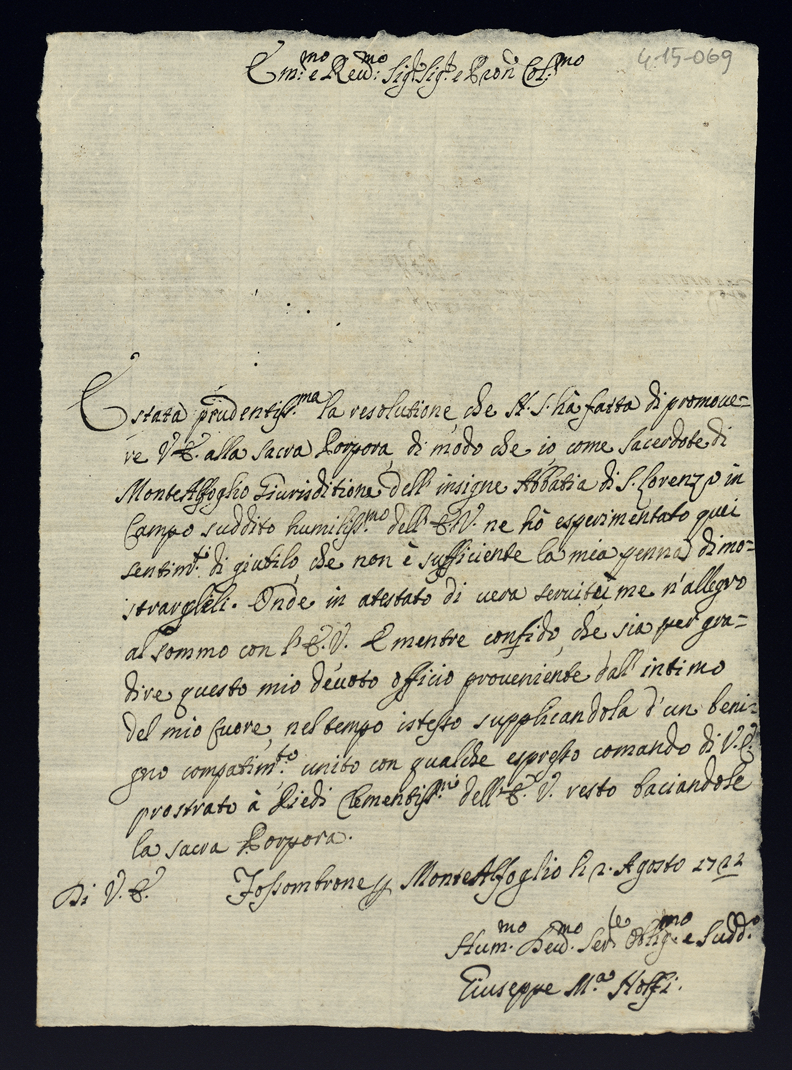 4-15-069
Em:mo e Reud:mo Sig.r Sig.r e Pron Col:mo
È stata prudentiss.ma la resolutione che N. S. hà fatta di promoue=
re V. E. alla sacra Porpora, di modo che io come sacerdote di
Monte Alfoglio Giurisditione dell'insigne Abbatia di S. Lorenzo in
Campo suddito humiliss.mo dell'E. V. ne hò esperimentato quei
sentim.ti di giutilo, che non è sufficiente la mia penna dimo=
strargleli. Onde in atestato di uera seruitù me n'allegro
al sommo con l'E. V. E mentre confido, che sia per gra=
dire questo mio deuoto officio proueniente dall'intimo
del mio cuore, nel tempo istesso supplicandola d'un beni=
gno compatim.to unito con qualche espresso comando di V. E.
prostrato à Piedi Clementiss.mi dell'E. V. resto baciandole
la sacra Porpora.
Di V. E. Fossombrone Monte Alfoglio li 2. Agosto 1722
Hum.mo Deud.mo Ser.re Oblig.mo e Sudd.o
Giuseppe M.a Hoffi.